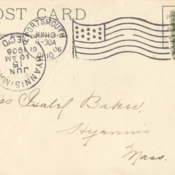 POST CARD
PORTSMOUTH
JUN
5-30A
HYANNIS, MASS.
JUN
15
10 AM
1909
REC'D
Miss Isabel Baker,
Hyannis
Mass.